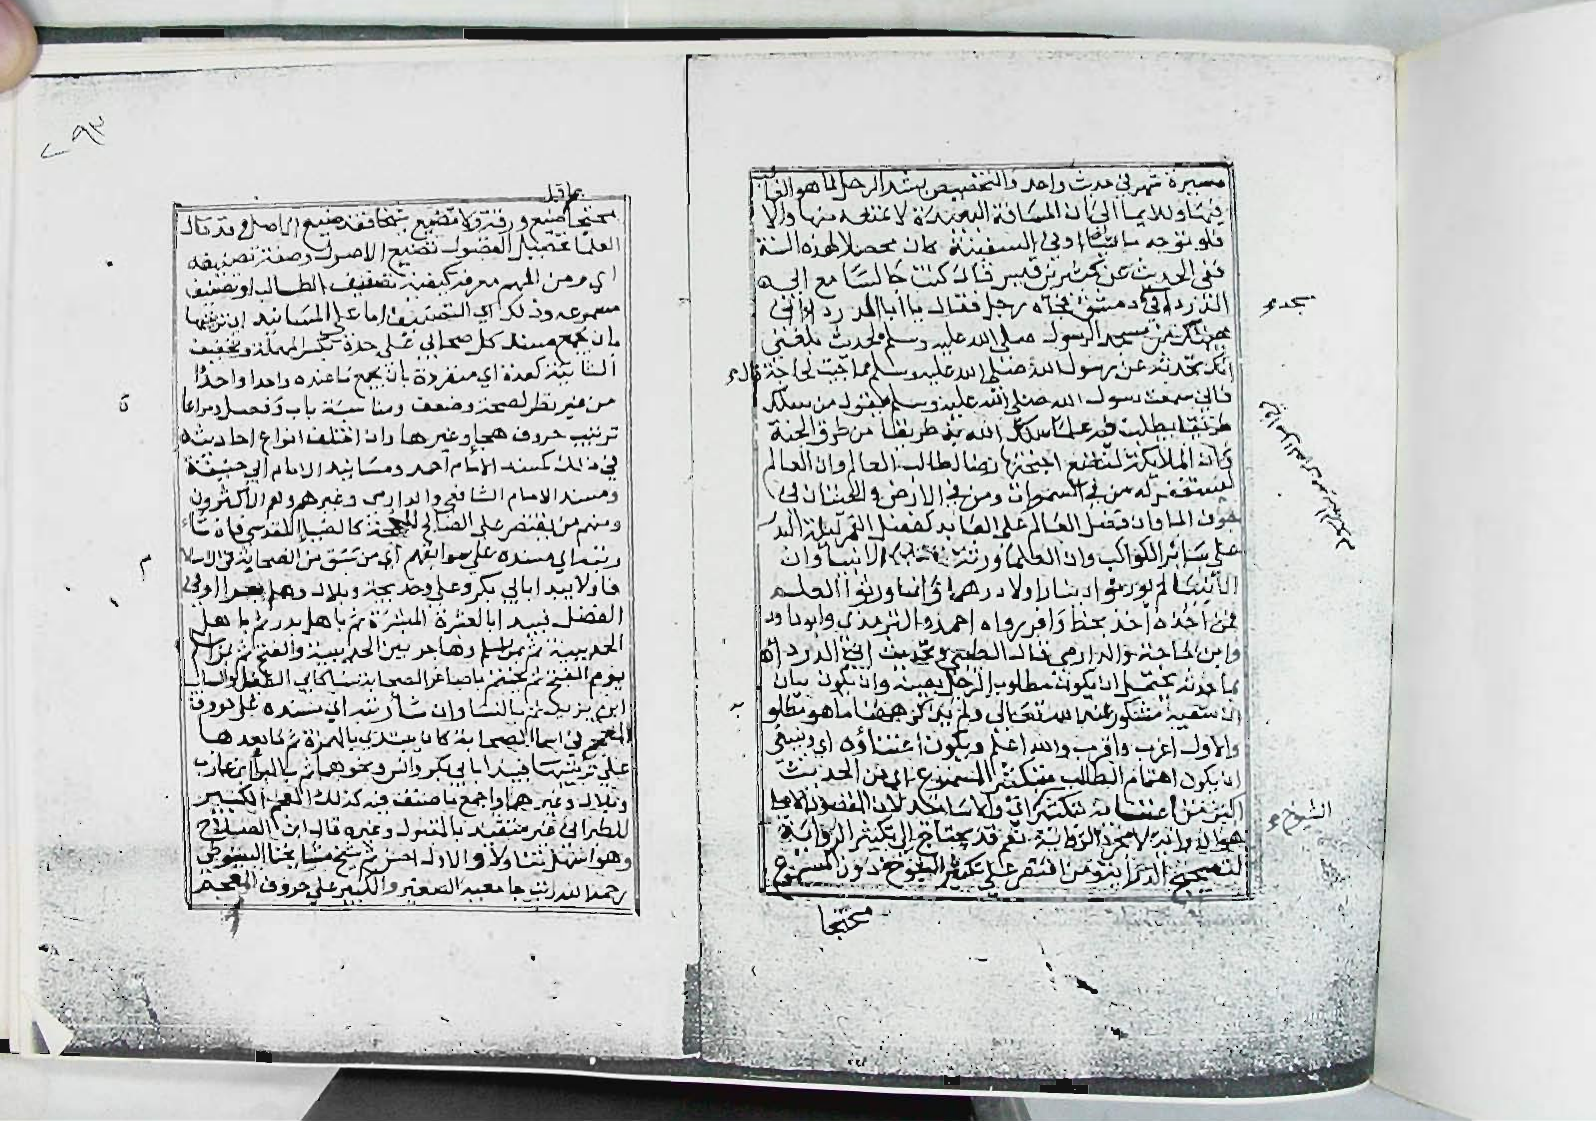 مسيرة شهر في حديث واحد والتخصيص بشد الرحل لما هو الغالب
فيها وللايما الى ان المسافة البعيدة لا تمنعه منها والا
فلو توجه ماشيا او في السفينة كان محصلا لهذه السنة
ففي الحديث عن كثير بن قيس قال كنت جالسا مع ابي
الدرداء في دمشق فجاه رجل فقال يا ابا الدرداء اني
جئتك من مدينة الرسول صلى الله عليه وسلم لحديث بلغني
انك تحدثه عن رسول الله صلى الله عليه وسلم ما جيت لحاجة قال
فاني سمعت رسول الله صلى الله عليه وسلم يقول من سلك
طريقا يطلب فيه علما سلك الله به طريقا من طرق الجنة
وان الملايكة لتضع اجنحتها رضا لطالب العلم وان العالم
ليستغفر له من في السموات ومن في الارض والحيتان في
جوف الما وان فضل العالم على العابد كفضل القمر ليلة البدر
على سائر الكواكب وان العلما ورثة الانبيا وان
الانبيا لم يورثوا دينارا ولا درهما وانما ورثوا العلم
فمن اخذه اخذ بحظ وافر رواه احمد والترمذي وابو داود
وابن ماجة والدارمي قال الطيبي وتحديث ابي الدرداء
بما حدثه يحتمل ان يكون مطلوب الرجل بعينه وان يكون بيان
ان سعيه مشكور عند الله تعالى ولم يذكر ههنا ما هو مطلوبه
والاول اغرب واقرب والله اعلم ويكون اعتناؤه اي وينبغي
ان يكون اهتمام الطالب بتكثير المسموع اي من الحديث
اكثر من اعتنائه بتكثير
هو الدراية لا مجرد الرواية نعم قد يحتاج الى تكثير الرواية
لتصحيح الدراية ومن اقتصر على تكثير الشيوخ دون المسموع
محتجا
الشيوخ
بما قيل
محتجا ضيع ورقة ولا تضيع شيخا فقد ضيع الاصل وقد قال
العلما تحصيل الفضول تضييع الاصول وصفة تصنيفه
اي ومن المهم معرفة كيفية تصنيف الطالب او تصنيف
مسموعه وذلك اي التصنيف اما على المسانيد اي ترتيبها
بان يجمع مسند كل صحابي على حدة بكسر المهملة وتخفيف
الثانية كعدة اي منفردة بان يجمع ما عنده واحدا واحدا
من غير نظر لصحة وضعف ومناسبة باب وفصل ومراعاة
ترتيب حروف هجا وغيرها وان اختلف انواع احاديثه
في ذلك كمسند الامام احمد ومسانيد الامام ابي حنيفة
ومسند الامام الشافعي والدارمي وغيرهم وهم الاكثرون
ومنهم من يقتصر على الصالح للحجة كالضيا المقدسي فان شاء
رتبه اي مسنده على سوابقهم اي من سبق من الصحابة في الاسلام
فاولا يبدا بابي بكر وعلي وخديجة وبلال
الفضل فيبدا بالعشرة المبشرة ثم باهل بدر ثم باهل
الحديبية ثم بمن اسلم وهاجر بين الحديبية والفتح ثم بمن اسلم
يوم الفتح ثم يختم باصاغر الصحابة سنا كابي الطفيل والسائب
ابن يزيد ثم بالنسا وان شا رتبه اي مسنده على حروف
المعجم في اسما الصحابة كان يبتدي بالهمزة ثم ما بعدها
على ترتيبها فيبدا بابي بكر وانس ونحوهما ثم بالبرا بن عازب
وبلال وغيرهما واجمع ما صنف فيه كذلك المعجم الكبير
للطبراني غير متقيد بالمقبول وغيره قال ابن الصلاح
وهو اسهل تناولا والاول احسن ثم شيخ مشايخنا السيوطي
رحمه الله رتب جامعيه الصغير والكبير على حروف المعجم